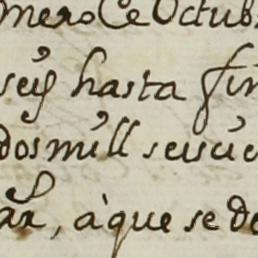 mero de Octub
seis hasta fin
dos mill seiscie
ar, à que se de